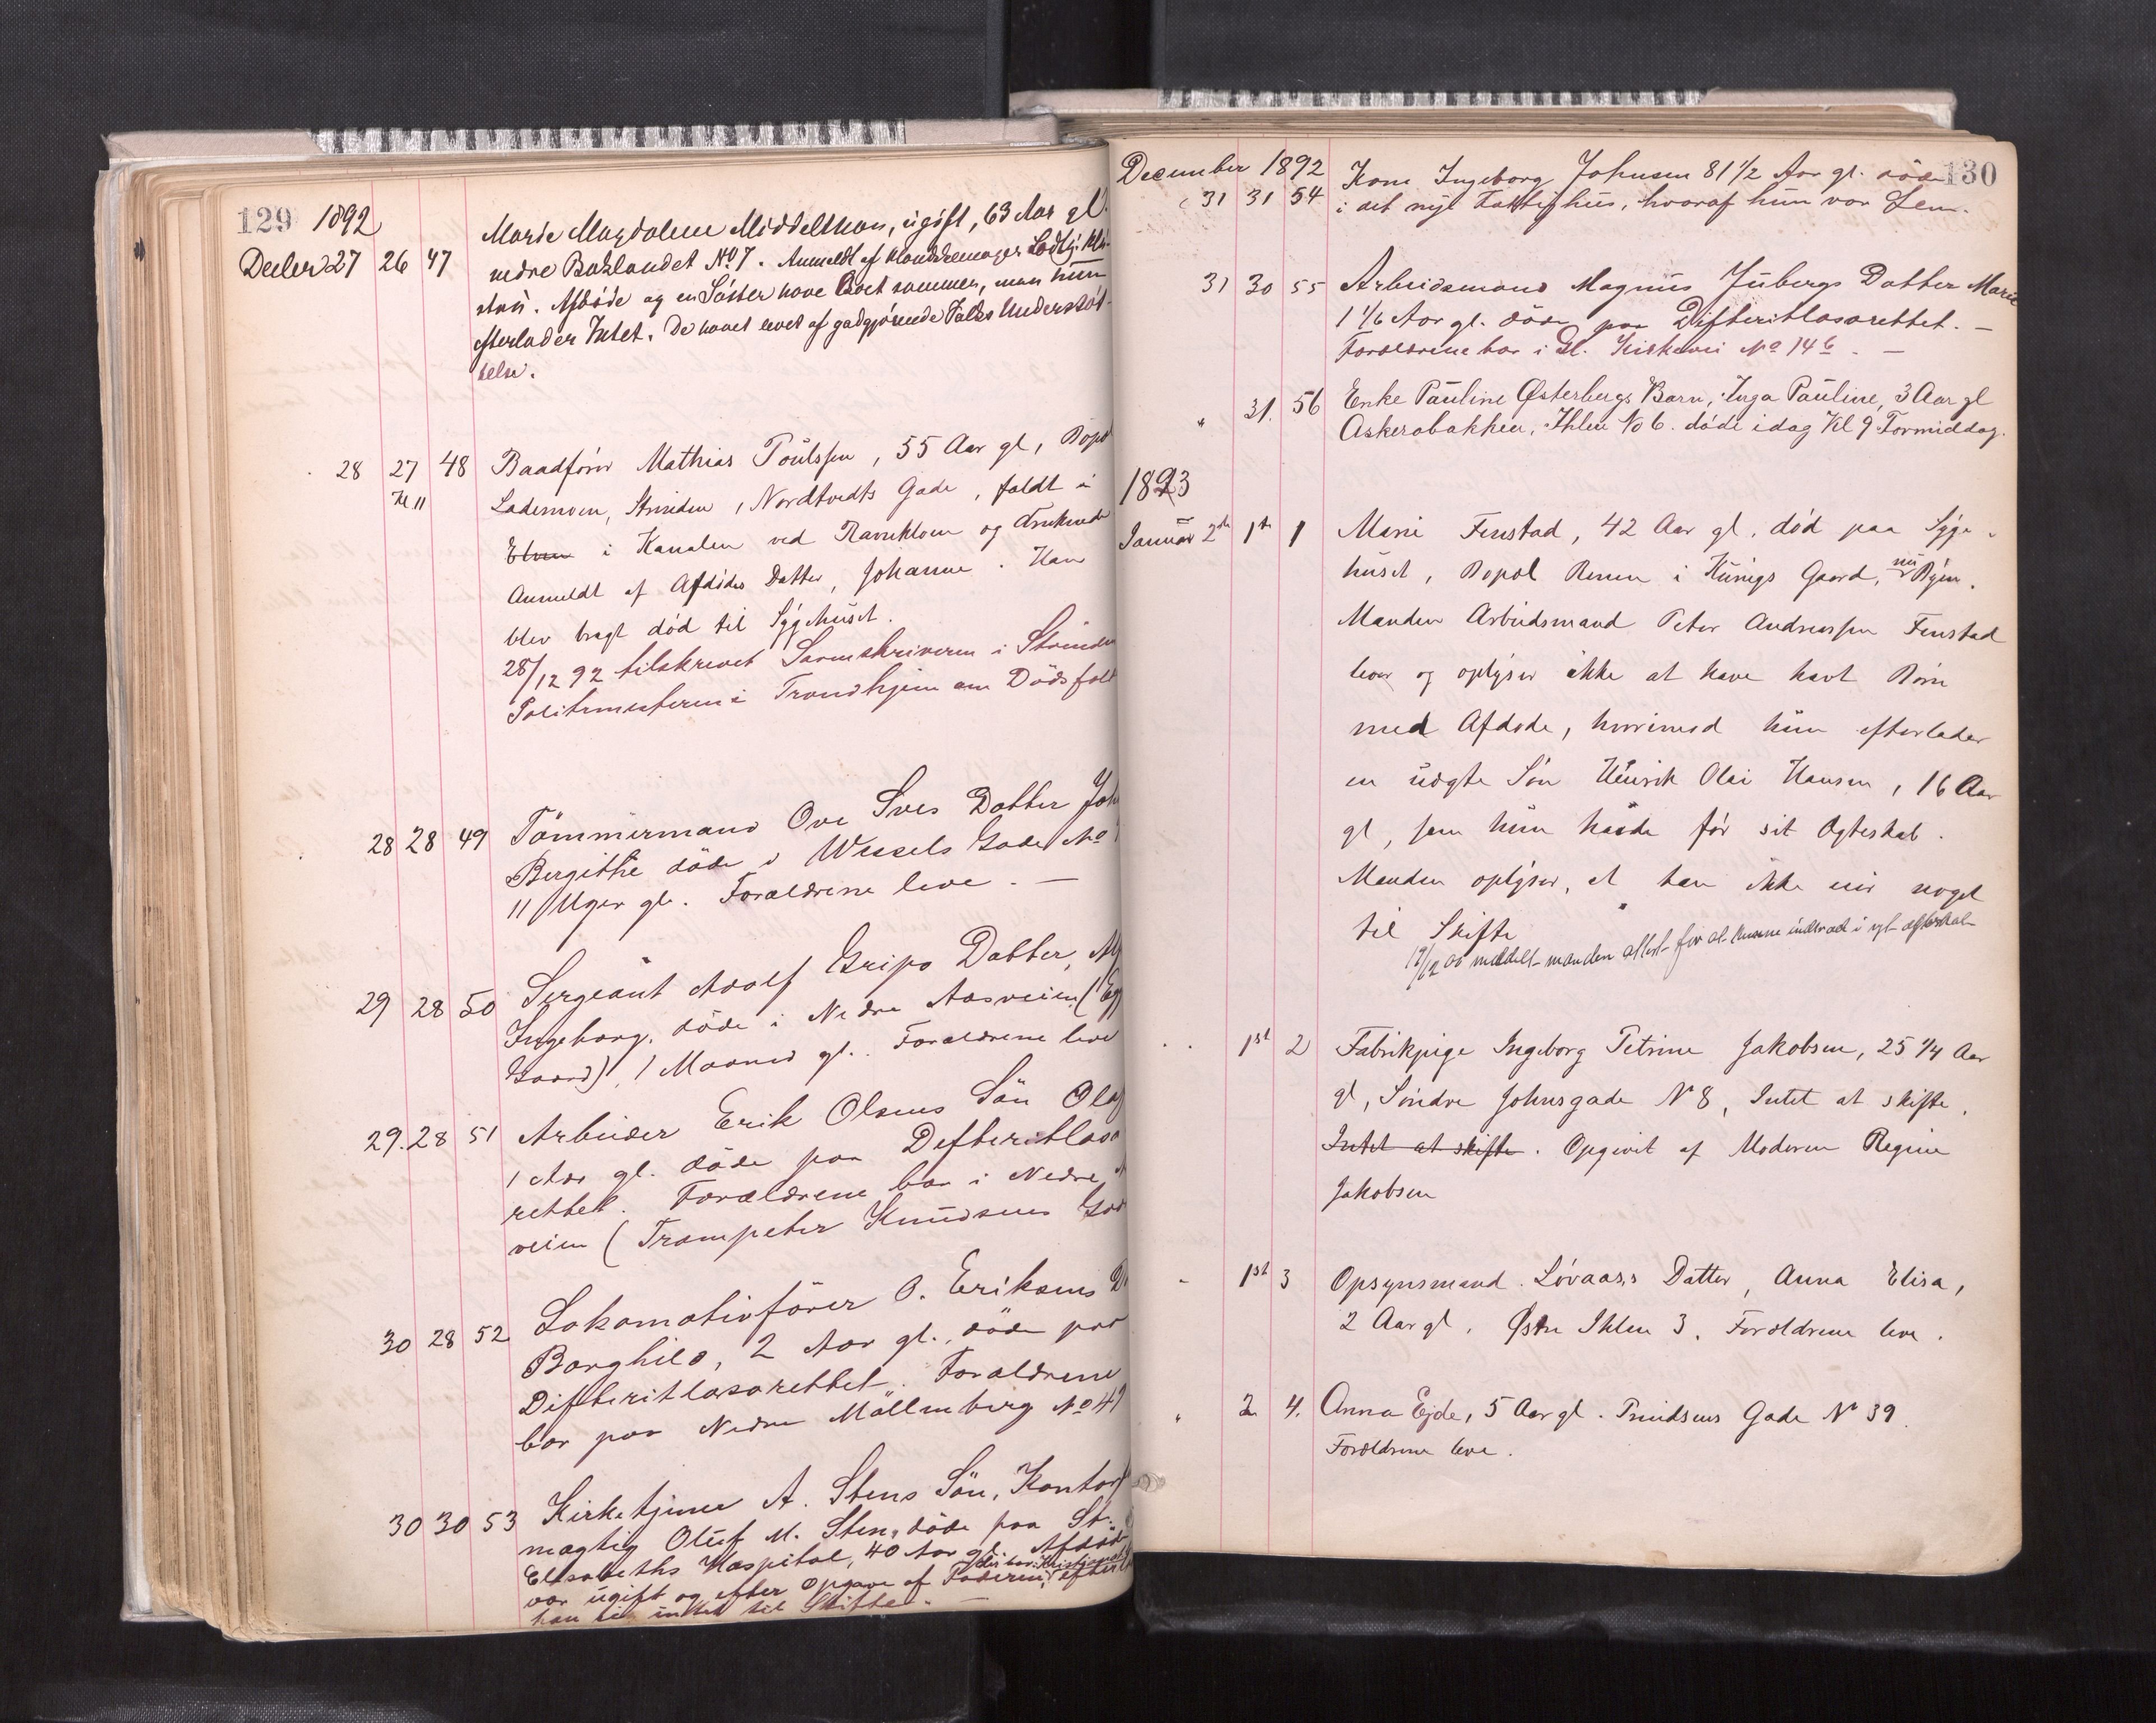 129 1892
Decbr 27 26 47 Marie Magdalene Middelthon, ugift, 63 Aar gl.
nedre Baklandet No 7. Anmeldt af
Afdöde og en Søster have levet sammen, men hun
efterlader Intet. De havet levet af godgjørende Folks Understøt-
telse.
28 27 48 Baadfører Mathias Poulsen, 55 Aar gl, Bopæl
Kl 11 Lademoen, Strinden, Nordtvedts Gade, faldt i
Elven i Kanalen ved Ravnkloen og druknede
Anmeldt af Afdødes Datter, Johanne. Han
blev bragt død til Sygehuset.
28/12 92 tilskrevet Sorenskriveren i Strinden
Politimesteren i Trondhjem om Dødsfald
28 28 49 Tömmermand Ove Sves Datter Joh
Bergithe döde i Wessels Gade No
11 Uger gl. Forældrene leve. —
29 28 50 Sergeant Adolf Grips Datter,
Ingeborg, döde i Nedre Aasveien (
Gaard), 1 Maaned gl. Forældrene leve
29. 28 51 Arbeider Erik Olsens Sön Olaf
1 Aar gl. döde paa Defteritlasa
rettet. Forældrene bor i Nedre
veien (Trompeter Knudsens
30 28 52 Lokomotivförer O. Eriksens
Borghild, 2 Aar gl., döde paa
Difteritlasarettet. Forældrene
bor paa Nedre Möllenberg No 41
30 30 53 Kirketjener A. Stens Sön, Kontorf
mægtig Oluf M. Sten, döde paa St.
Elisabeths Hospital, 40 Aar gl. Afdøde
der bor i Kristiansund
var ugift og efter Opgave af Faderen, efterl
han sig intet til Skifte. —
130
December 1892
31 31 54 Kone Ingeborg Johnsen 81 1/2 Aar gl. döde
i det nye Fattighus, hvoraf hun var Lem.
31 30 55 Arbeidsmand Magnus Jubergs Datter Marie
1 1/6 Aar gl. döde paa Difteritlasarettet. —
Forældrene bor i Gl. Kirkevei No 14 b. —
" 31. 56 Enke Pauline Østerbergs Barn, Inga Pauline, 3 Aar gl
Askerobakken, Ihlen No 6. døde idag Kl 9 Formiddag.
1893
Januar 2de 1ste 1 Marie Fenstad, 42 Aar gl. død paa Syge-
huset, Bopæl Renen i Kunigs Gaard, nu Byen.
Manden Arbeidsmand Peter Andreassen Fenstad
lever og oplyser ikke at have havt Børn
med Afdøde, hvorimod hun efterlader
en uægte Søn Henrik Olai Hansen, 16 Aar
gl, som hun havde før sit Ægteskab.
Manden oplyser, at han ikke eier noget
til Skifte
19/12 00 meddelt manden attest for at kunne indtræde i nyt ægteskab
1st 2 Fabrikpige Ingeborg Petrine Jakobsen, 25 1/4 Aar
gl, Søndre Johnsgade N 8, Intet at skifte,
Intet at skifte. Opgivet af Moderen Regine
Jakobsen
" 1st 3 Opsynsmand Løvaas's Datter, Anna Elisa,
2 Aar gl, Østre Ihlen 3. Forældrene leve.
" 2 4. Anna Ejde, 5 Aar gl. Trudsens Gade N 39.
Forældrene leve.